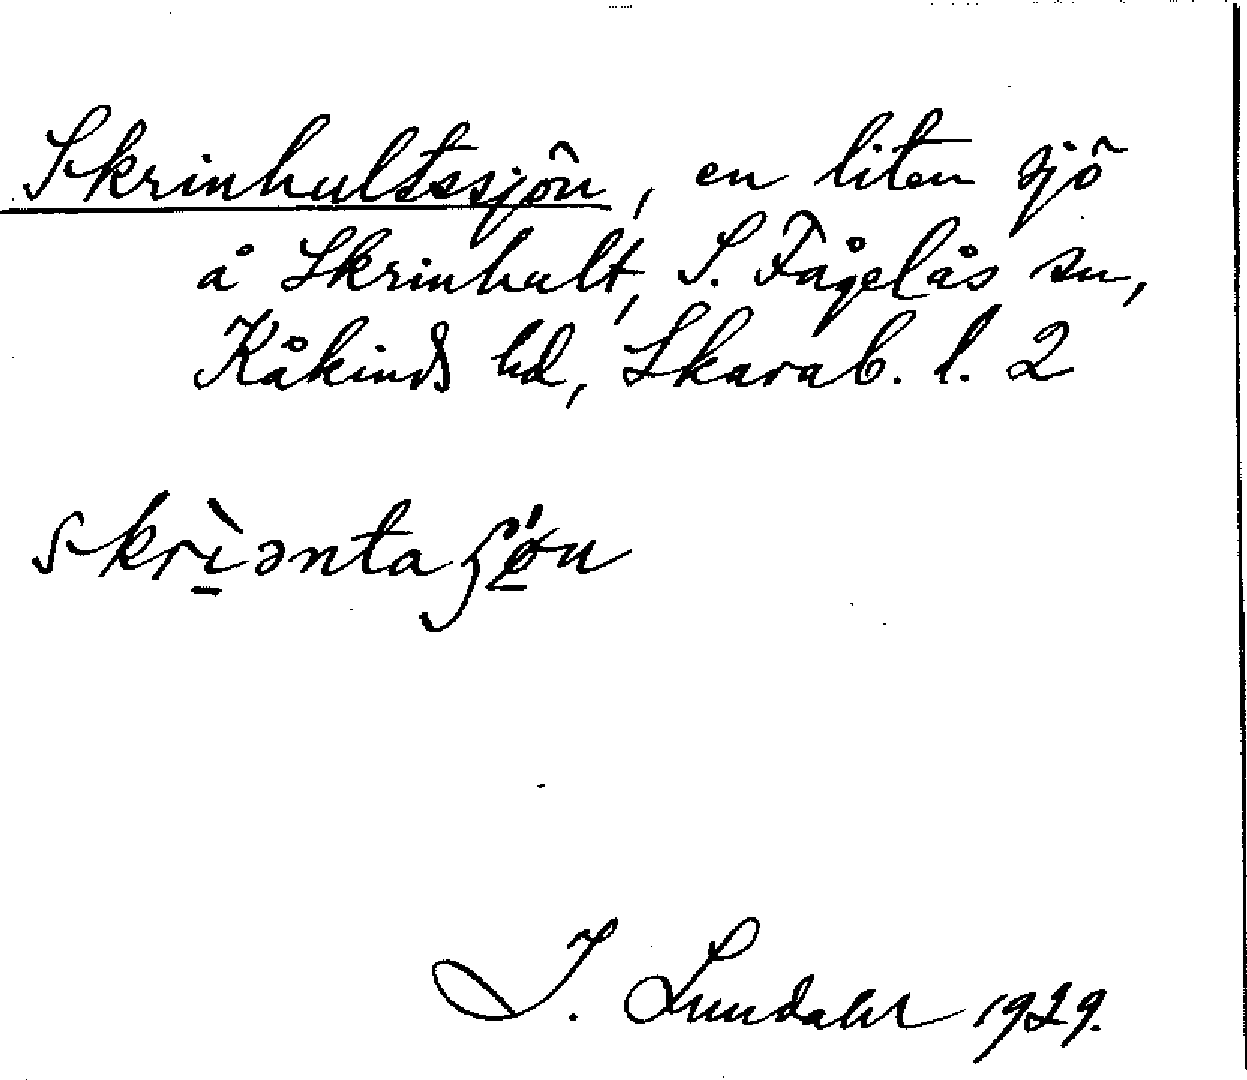 Skrinhultssjön, en liten sjö
å Skrinhult, S. Fågelås sn,
Kåkinds hd, Skarab. l. 2
skrìənta ʃøn
I. Lundahl 1929.